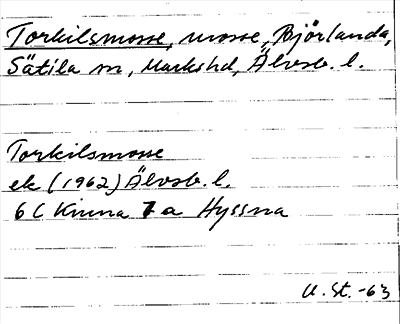 Torkilsmosse, mosse, Björlanda,
Sätila sn, Markshd, Älvsb. l.
Torkilsmosse
ek (1962) Älvsb. l.
6 C Kinna 7 a Hyssna
U. St. -63